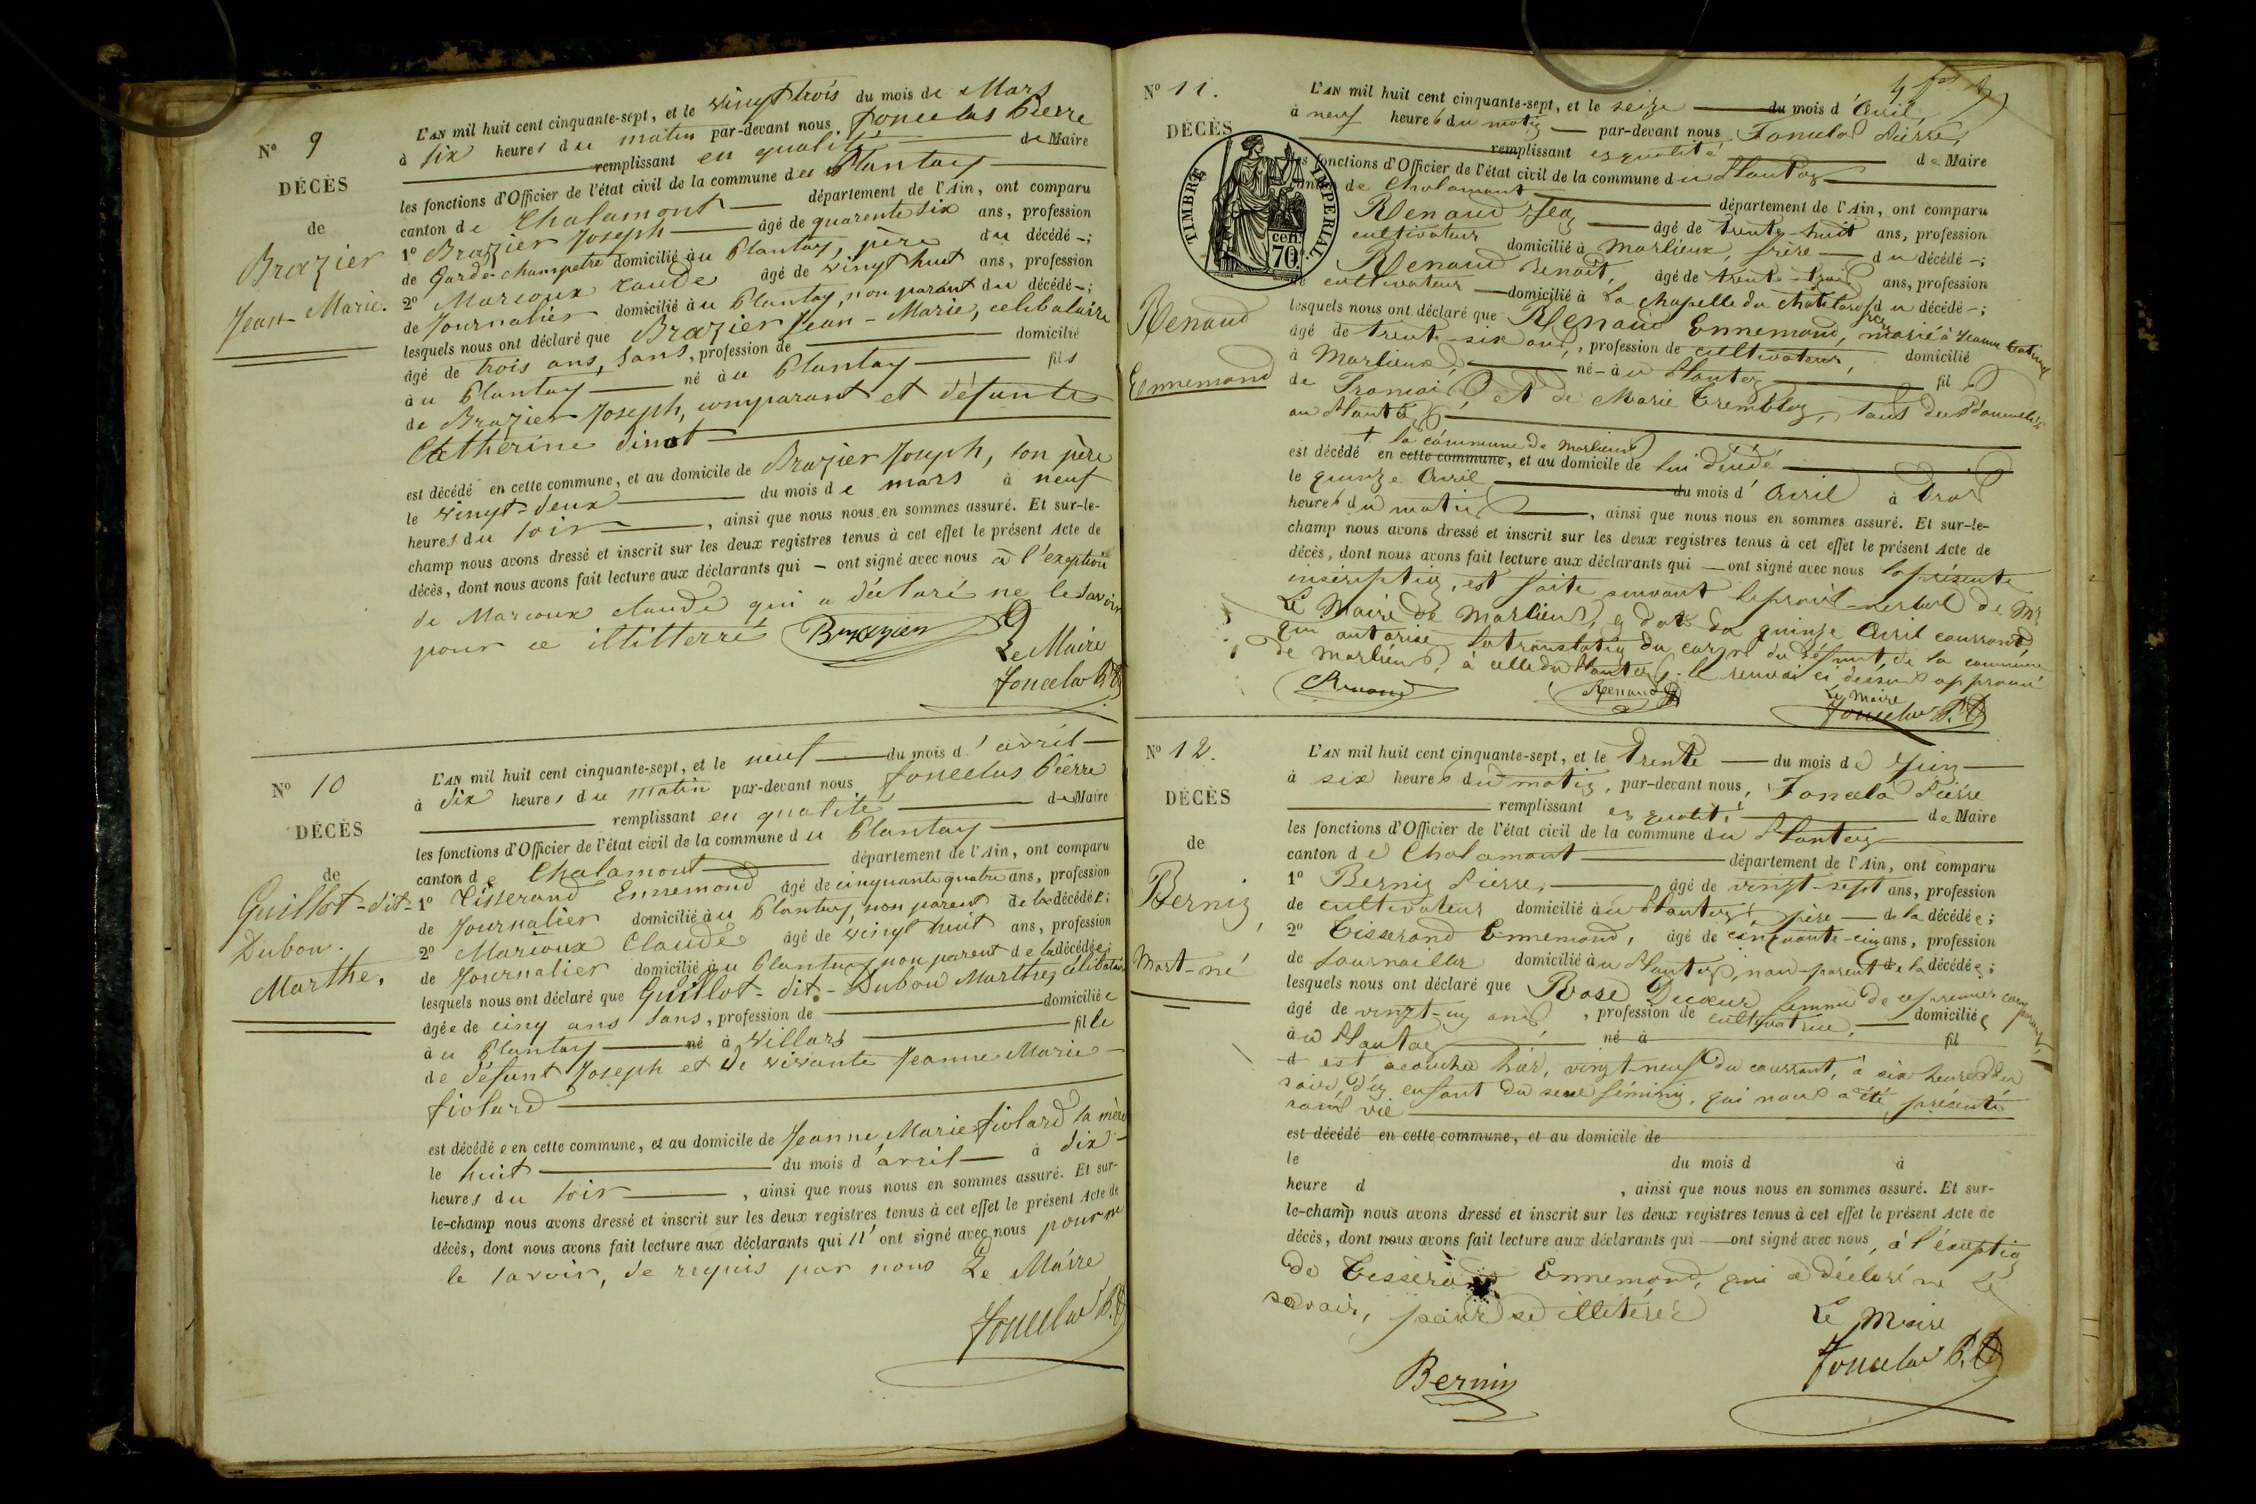 N° 9
DÉCÈS
de
Brazier
Jean-Marie.
L'AN mil huit cent cinquante-sept, et le vingt trois du mois de Mars
à six heures du matin par-devant nous Joncelas Pierre
remplissant en qualité de Maire
les fonctions d'Officier de l'état civil de la commune du Plantay
canton de Chalamont département de l'Ain, ont comparu
1° Brazier Joseph âgé de quarente six ans, profession
de Garde-champetre domicilié au Plantay, père du décédé ;
2° Marioux Claude âgé de vingt huit ans, profession
de Journalier domicilié au Plantay, non parent du décédé ;
lesquels nous ont déclaré que Brazier Jean-Marie, celibataire
âgé de trois ans, sans, profession de domicilié
au Plantay né au Plantay fils
de Brazier Joseph, comparant et défunte
Catherine
est décédé en cette commune, et au domicile de Brazier Joseph, son père
le vingt-deux du mois de mars à neuf
heures du soir, ainsi que nous nous en sommes assuré. Et sur-le-
champ nous avons dressé et inscrit sur les deux registres tenus à cet effet le présent Acte de
décès, dont nous avons fait lecture aux déclarants qui ont signé avec nous à l'exeption
de Marioux claude qui a déclaré ne le savoir
pour ce illitterré Brazier
Le Maire
Joncelas P.
N° 10
DÉCÈS
de
Guillot-dit-
Dubon.
Marthe.
L'AN mil huit cent cinquante-sept, et le neuf du mois d'avril
à dix heures du matin par-devant nous Joncelas Pierre
remplissant en qualité de Maire
les fonctions d'Officier de l'état civil de la commune du Plantay
canton de Chalamont département de l'Ain, ont comparu
1° Tisserand Ennemond âgé de cinquante quatre ans, profession
de Journalier domicilié au Plantay, non parent de la décédée ;
2° Marioux Claude âgé de vingt huit ans, profession
de Journalier domicilié au Plantay non parent de la décédée ;
lesquels nous ont déclaré que Guillot-dit-Dubon Marthe, célibataire
âgée de cinq ans sans, profession de domiciliée
au Plantay né à Villars fille
de défunt Joseph et de vivante Jeanne Marie
fiolard
est décédée en cette commune, et au domicile de Jeanne Marie fiolard sa mère
le huit du mois d'avril à dix
heures du soir, ainsi que nous nous en sommes assuré. Et sur-
le-champ nous avons dressé et inscrit sur les deux registres tenus à cet effet le présent Acte de
décès, dont nous avons fait lecture aux déclarants qui n'ont signé avec nous pour ne
le savoir, de requis par nous Le Maire
Joncelas P.
N° 11.
DÉCÈS
Renaud
Ennemond
TIMBRE IMPERIAL
70 cen.
L'AN mil huit cent cinquante-sept, et le seize du mois d'Avril,
à neuf heures du matin par-devant nous Joncelas Pierre,
remplissant en qualité de Maire
les fonctions d'Officier de l'état civil de la commune du Plantay
canton de Chalamont département de l'Ain, ont comparu
Renaud Jean âgé de trente-huit ans, profession
cultivateur domicilié à Marlieux, frère du décédé ;
Renaud Benoît, âgé de trente-trois ans, profession
de cultivateur domicilié à la chapelle du châtelard, frère du décédé ;
lesquels nous ont déclaré que Renaud Ennemond, marié à Jeanne
âgé de trente-six ans, profession de cultivateur, domicilié
à Marlieux né au Plantay fils
de François, et de Marie Tremblay, tous deux domiciliés
au Plantay
+ la commune de Marlieux
est décédé en cette commune, et au domicile de lui décédé
le quinze Avril du mois d'Avril à trois
heures du matin, ainsi que nous nous en sommes assuré. Et sur-le-
champ nous avons dressé et inscrit sur les deux registres tenus à cet effet le présent Acte de
décès, dont nous avons fait lecture aux déclarants qui ont signé avec nous la présente
inscription, est faite suivant le procès-verbal de Mr
Le Maire de Marlieux, en date du quinze Avril courrant
qui autorise la translation du corps du défunt, de la commune
de Marlieux, à celle du Plantay. le renvoi ci dessus approuvé
Renaud Renaud
Le Maire
Joncelas P.
N° 12.
DÉCÈS
de
Bernin,
Mort-né
L'AN mil huit cent cinquante-sept, et le trente du mois de Juin
à six heures du matin, par-devant nous, Joncelas Pierre
remplissant en qualité de Maire
les fonctions d'Officier de l'état civil de la commune du Plantay
canton de Chalamont département de l'Ain, ont comparu
1° Bernin Pierre, âgé de vingt-sept ans, profession
de cultivateur domicilié au Plantay, père de la décédée ;
2° Tisserand Ennemond, âgé de cinquante-cinq ans, profession
de Journailler domicilié au Plantay, non-parent de la décédée ;
lesquels nous ont déclaré que Rose Ducœur femme de ce premier comparant,
âgé de vingt-un ans, profession de cultivatrice, domiciliée
au Plantay né à fil
d est acouchée hier, vingt-neuf du courrant, à six heures du
soir, d'un enfant du sexe féminin, qui nous a été présenté
sans vie
est décédé en cette commune, et au domicile de
le du mois d à
heure d , ainsi que nous nous en sommes assuré. Et sur-
le-champ nous avons dressé et inscrit sur les deux registres tenus à cet effet le présent Acte de
décès, dont nous avons fait lecture aux déclarants qui ont signé avec nous, à l'éxeption
de Tisserand Ennemond, qui a déclaré ne le
savoir, illitéré
Le Maire
Joncelas P.
Bernin